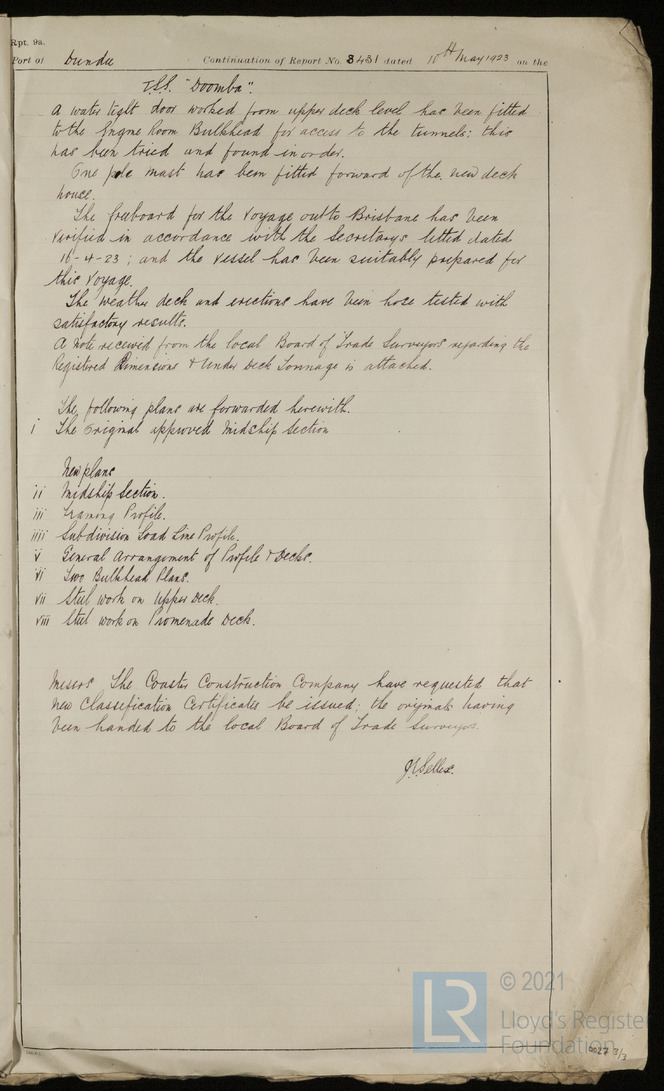 Rpt. 9a.
Port of Dundee Continuation of Report No. 3431 dated 10th May 1923 on the
T.S.S. "Doomba".
A water tight door worked from upper deck level has been fitted
to the Engine Room Bulkhead for access to the tunnels: this
has been tried and found in order.
One pole mast has been fitted forward of the new deck
house.
The freeboard for the voyage out to Brisbane has been
verified in accordance with the Secretarys letted dated
16-4-23; and the vessel has been suitably prepared for
this voyage.
The weather deck and erections have been hose tested with
satisfactory results.
A note received from the local Board of Trade Surveyors regarding the
Registered Dimensions & Under Deck Tonnage is attached.
The following plans are forwarded herewith.
i The Original approved Midship Section
New plans
ii Midship Section.
iii Framing Profile.
iiii Subdivision Load Line Profile.
v General Arrangement of Profile & Decks.
vi Two Bulkhead Plans.
vii Steel work on Upper Deck.
viii Steel work on Promenade Deck.
Messrs The Coaster Construction Company have requested that
New Classification Certificates be issued; the originals having
been handed to the local Board of Trade Surveyors.
LR
© 2021
Lloyd's Register
Foundation
0027 3/3